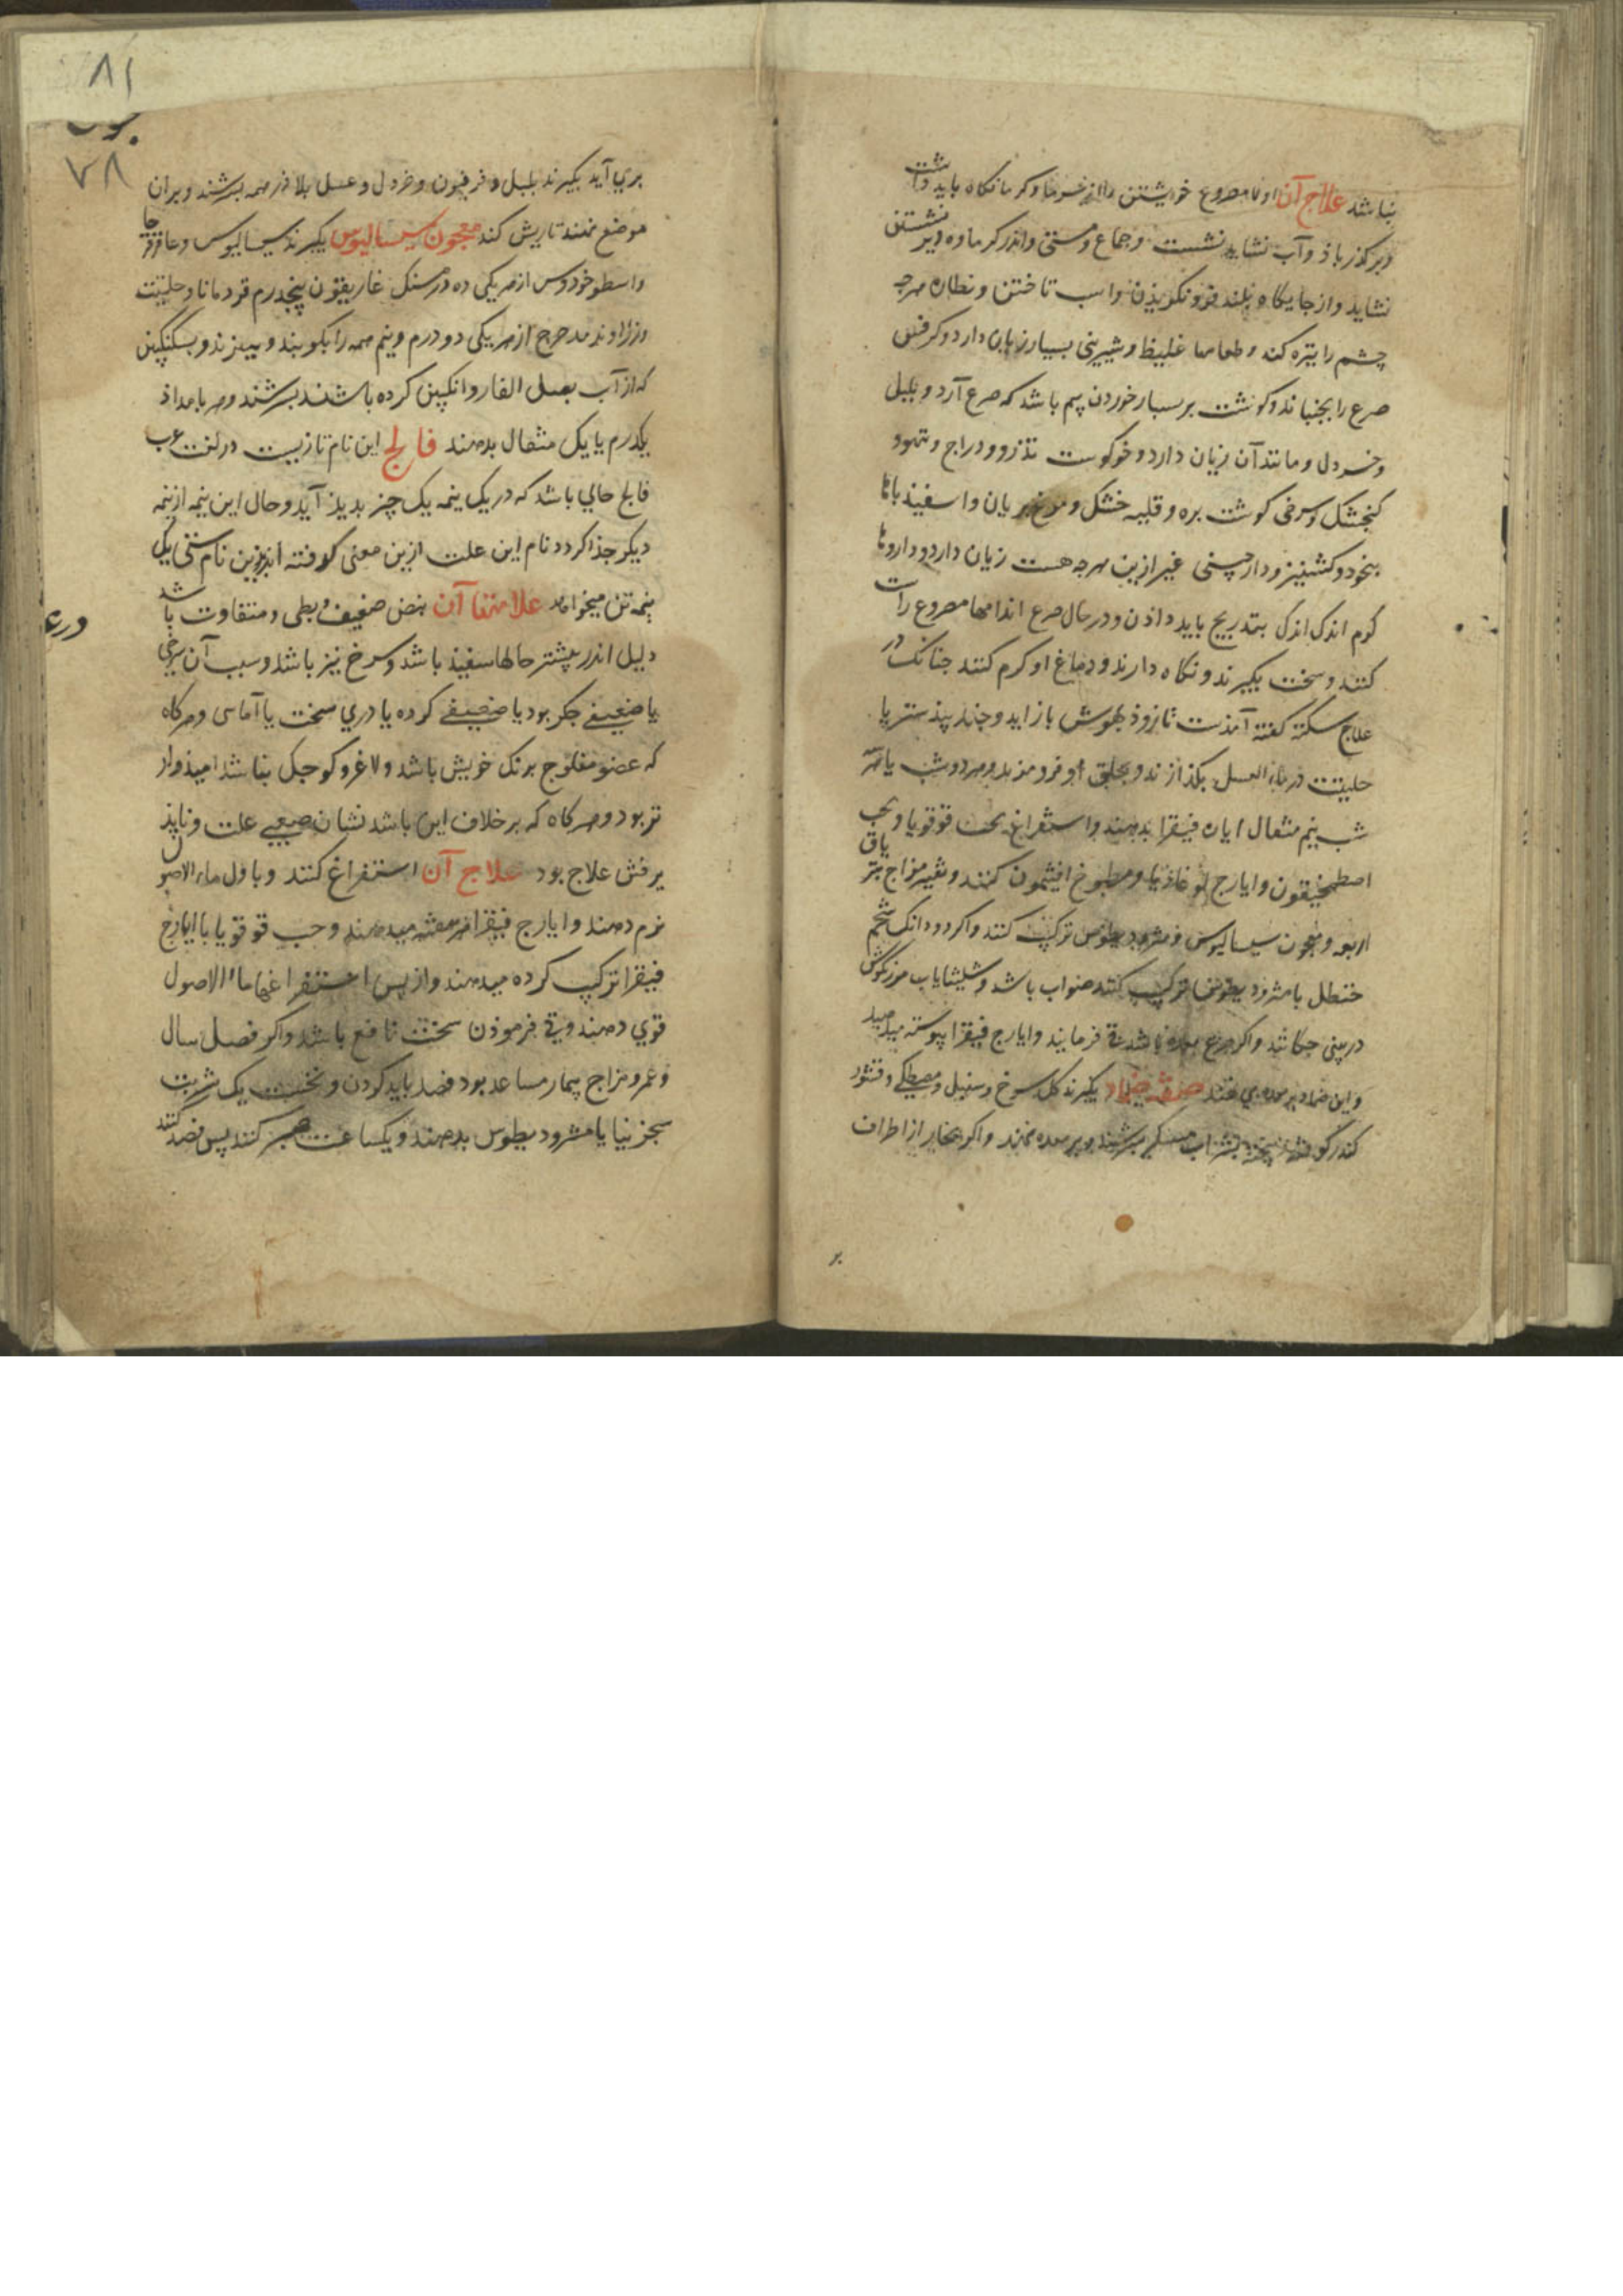 نباشد علاج آن اولا مصروع خویشتن را از سرما و کرما نکاه باید داشت
و بر کذر باذ و آب نشاید نشست و جماع و مستی و اندر کرماوه دیر نشستن
نشاید و از جایکاه بلند فرو نکریذن و اسب تاختن و نظاره هرجه
چشم را تیره کند و طعامها غلیظ و شیرینی بسیار زیان دارد و کرفس
صرع را بجنباند و کوشت بز بسیار خوردن بیم باشد که صرع آرد و بلبل
و خردل و مانند آن زیان دارد و خوکوشت تذرو و دراج و تیهو و
کنجشک و کوشت بره و قلیه خشک و مرغ بریان و اسفیذباها
بنخود و کشنیز و دارچینی غیر ازین هرجه هست زیان دارد و داروها
کرم اندک اندک بتدریج باید داذن و در حال صرع اندامها مصروع راست
کنند و سخت بکیرند و نکاه دارند و دماغ او کرم کنند جنانک در
علاج سکته کفته آمذست تا زوذ بهوش باز آید و جند بیذستر یا
حلتیت در ماء العسل بکذازند و بحلق او فرو ریزند و هر دو شب یا سه
شب نیم مثقال ایاره فیقرا بدهند و استفراغ بحب قوقویا و بحب
اصطمخیقون و ایارج لوغاذیا و مطبوخ افیثمون کنند و تغییر مزاج بتریاق
اربعه و معجون سیسالیوس و مثرودیطوس ترکیب کنند و اکر دو دانک شحم
حنظل با مثرودیطوس ترکیب کنند صواب باشد و شلیثا باب مرزنکوش
در بینی جکانند و اکر صرع معده باشد قی فرمایند و ایارج فیقرا پیوسته میدهند
و این ضماد بر معده می نهند صفة ضماد بکیرند کل سرخ و سنبل و مصطکی و قشور
کندر کوفته بیخته بشراب بسرشند و بر معده نهند و اکر بخار از اطراف
۸۱
۷۸
بری آید بکیرند بلبل و فرفیون و خردل و عسل بلاذر همه بسرشند و بران
موضع نهند تا ریش کند معجون سیسالیوس بکیرند سیسالیوس و عاقرقرحا
و اسطوخودوس از هر یکی ده درمسنک غاریقون پنجدرم قردمانا و حلتیت
و زراوند مدحرج از هر یکی دو درم و نیم همه را بکوبند و ببیزند و بسکنکبین
که از آب بصل الفار و انکبین کرده باشند بسرشند و هر بامداد
یکدرم یا یک مثقال بدهند فالج این نام تازیست در لغت عرب
فالج حالی باشد که در یک نیمه یک چیز بدیذ آید و حال این نیمه از نیمه
دیکر جذا کردد نام این علت ازین معنی کرفته اند و بزین نام سستی یک
نیمه تن میخواهند علامتها آن نبض ضعیف و بطی و متفاوت باشد
دلیل اندر بیشتر حالها سفیذ باشد و سرخ نیز باشد و سبب آن سرخی
یا ضعیفی جکر بود یا ضعیفی کرده یا دردی سخت یا آماسی و هرکاه
که عضو مفلوج برنک خویش باشد و لاغر و کوجک نباشد امیذوار
تر بود و هرکاه که بر خلاف این باشد نشان صعبی علت و ناپذ
یرفتن علاج بود علاج آن استفراغ کنند و باول ماء الاصول
نرم دهند و ایارج فیقرا هر هفته میدهند و حب قوقویا با ایارج
فیقرا ترکیب کرده میدهند و از پس استفراغها ماء الاصول
قوی دهند و قی فرموذن سخت نافع باشد و اکر فصل سال
و عمر و مزاج بیمار مساعد بود فصد باید کردن و نخست یک شربت
سجزینیا یا مثرودیطوس بدهند و یکساعت صبر کنند پس فصد کنند